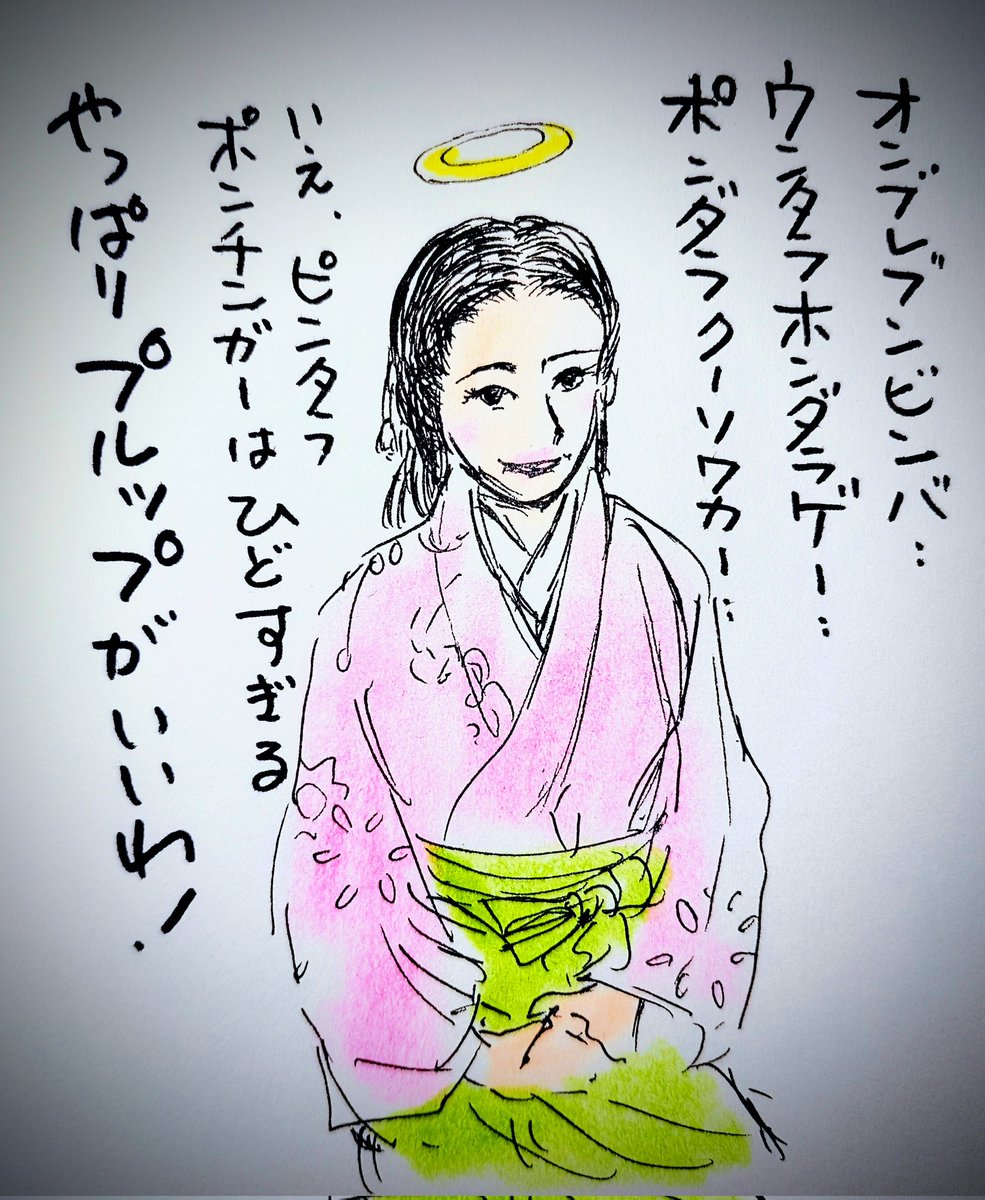 オンブレブンビンバ‥
ウンタラホンダラゲー‥
ポンダラクーソワカー‥
いえ、ピンタラ
ポンチンガーはひどすぎる
やっぱりプルップがいいわ!